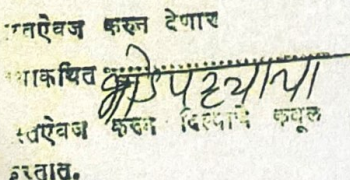 दस्तऐवज करुन देणार
तथाकथित
दस्तऐवज करुन दिल्याचे कबूल
करतात.